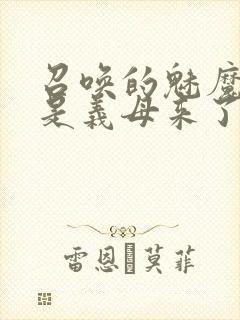 召唤的魅魔
是义母来了
雷恩·莫菲